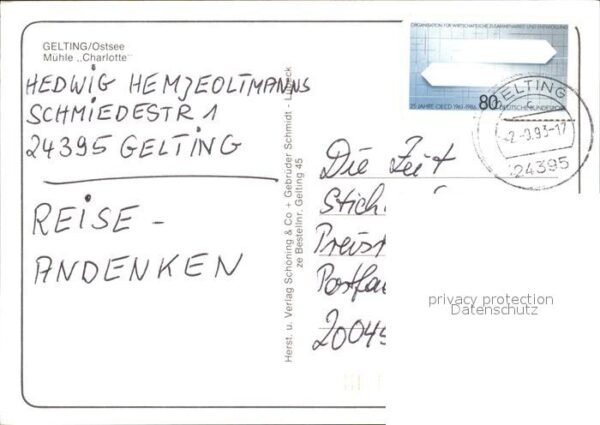 GELTING/Ostsee
Mühle „Charlotte"
HEDWIG HEMZEOLTMANNS
SCHMIEDESTR 1
24395 GELTING
REISE-
ANDENKEN
Herst. u. Verlag Schöning & Co + Gebrüder Schmidt - Lübeck
ze Bestellnr. Gelting 45
ORGANISATION FÜR WIRTSCHAFTLICHE ZUSAMMENARBEIT UND ENTWICKLUNG
25 JAHRE OECD 1961-1986
80
DEUTSCHE BUNDESPOST
GELTING
c
-2.-9.93-17
24395
Die Zeit
Stich
Preis
Postfac
20049
privacy protection
Datenschutz